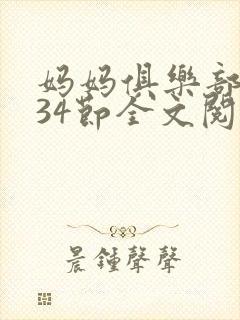 妈妈俱樂部
34節全文閱
晨鍾聲聲